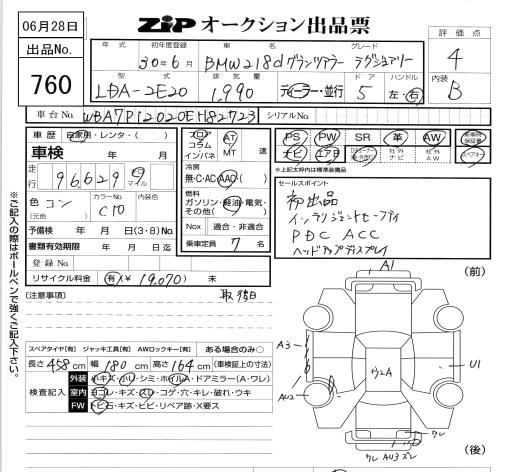 06月28日
ZIPオークション出品票
出品No.
760
評価点
4
内装
B
年式 初年度登録 車名 グレード
30年6月 BMW218dグランツアラー ラグジュアリー
型式 排気量 ドア ハンドル
LDA-2E20 1,990 ディーラー・並行 5 左・右
車台No. WBA7P12020EH82723 シリアルNo.
車歴 自家用・レンタ・( )
車検 年 月
走行 96,629 km マイル
色 コン カラーNo. C10 内装色
(元色)
予備検 年 月 日(3・8)No.
書類有効期限 年 月 日迄
登録No.
リサイクル料金 有(¥ 19,070) 未
フロア
コラム
インパネ
AT
MT 速
冷房
無・C・AC・AAC
燃料
ガソリン・軽油・電気・
その他( )
Nox 適合・非適合
乗車定員 7 名
PS PW SR 革 AW
ナビ エアB 社外ナビ 社外AW
新車時保証書
スペアキー
※上記太枠内は標準装備品
セールスポイント
初出品
インテリジェントセーフティ
PDC ACC
ヘッドアップディスプレイ
[注意事項]
※ご記入の際はボールペンで強くご記入下さい。
スペアタイヤ[有] ジャッキ工具[有] AWロックキー[有] ある場合のみ○
長さ458cm 幅180cm 高さ164cm (車検証上の寸法)
検査記入
外装 小キズ・凹・シミ・ホイルA・ドアミラー(A・ワレ)
室内 ヨゴレ・キズ・スレ・コゲ・穴・キレ・破れ・ウキ
FW トビ石・キズ・ヒビ・リペア跡・X要ス
A1
(前)
A3
U1
AU2
(後)